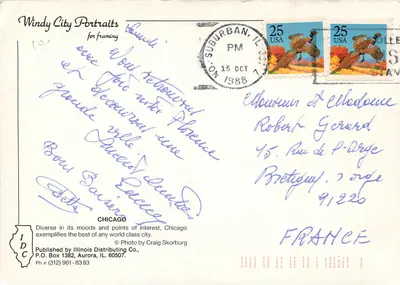 Windy City Portraits
for framing
Vous retrouver
une fois notre Florence
et découvrir une
grande ville
Bons Baisers
CHICAGO
Diverse in its moods and points of interest, Chicago
exemplifies the best of any world class city.
© Photo by Craig Skorburg
Published by Illinois Distributing Co.,
P.O. Box 1382, Aurora, IL 60507
Ph # (312) 961-8383
IDC
NO. SUBURBAN, IL
PM
15 OCT
1988
25
USA
25
USA
Monsieur et Madame
Robert Gerard
Rue de l'Orge
Bretigny s orge
91220
FRANCE